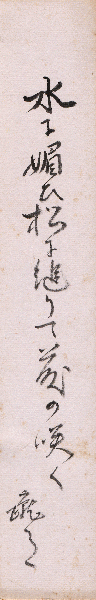 水に媚び松に縋りて藤の咲く